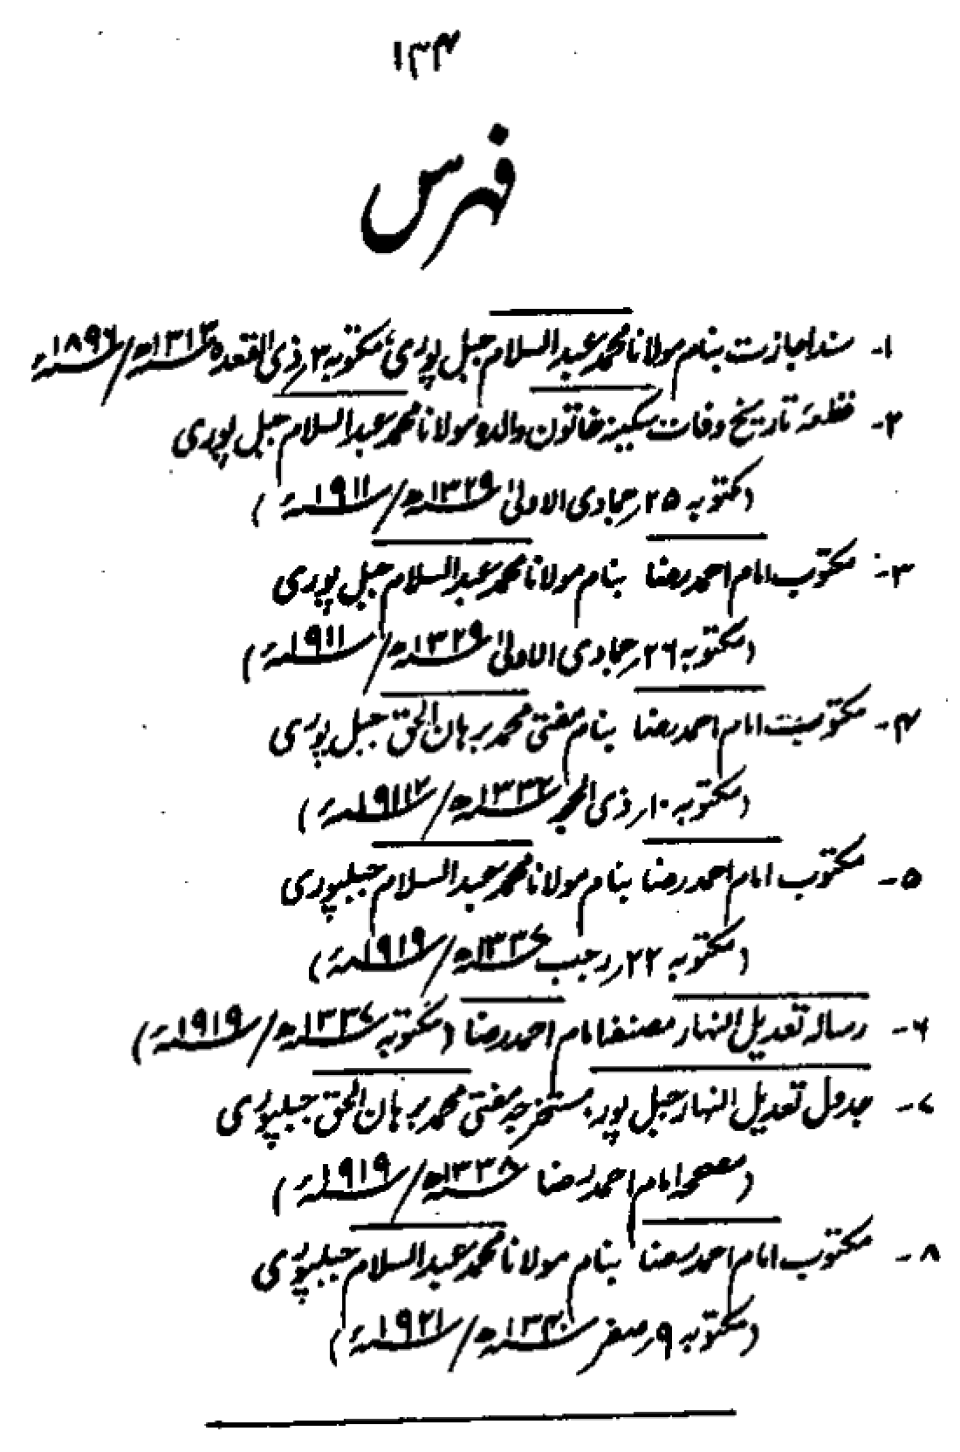 ۱۳۴
فہرس
۱۔ سند اجازت بنام مولانا محمد عبدالسلام جبل پوری، مکتوبہ ۳؍ذی القعدہ ۱۳۱۳ھ/۱۸۹۶ء
۲۔ قطعۂ تاریخ وفات سکینہ خاتون والدہ مولانا محمد عبدالسلام جبل پوری
(مکتوبہ ۲۵؍جمادی الاولیٰ ۱۳۲۹ھ/۱۹۱۱ء)
۳۔ مکتوب امام احمد رضا بنام مولانا محمد عبدالسلام جبل پوری
(مکتوبہ ۲۶؍جمادی الاولیٰ ۱۳۲۹ھ/۱۹۱۱ء)
۴۔ مکتوب امام احمد رضا بنام مفتی محمد برہان الحق جبل پوری
(مکتوبہ ۱۰؍ذی الحجہ ۱۳۳۲ھ/۱۹۱۲ء)
۵۔ مکتوب امام احمد رضا بنام مولانا محمد عبدالسلام جبلپوری
(مکتوبہ ۲۲؍رجب ۱۳۳۷ھ/۱۹۱۹ء)
۶۔ رسالہ تعدیل النہار مصنفہ امام احمد رضا (مکتوبہ ۱۳۳۷ھ/۱۹۱۹ء)
۷۔ جدول تعدیل النہار جبل پور، مستخرجہ مفتی محمد برہان الحق جبلپوری
(مصححہ امام احمد رضا ۱۳۳۸ھ/۱۹۱۹ء)
۸۔ مکتوب امام احمد رضا بنام مولانا محمد عبدالسلام جبلپوری
(مکتوبہ ۹؍صفر ۱۳۴۰ھ/۱۹۲۱ء)